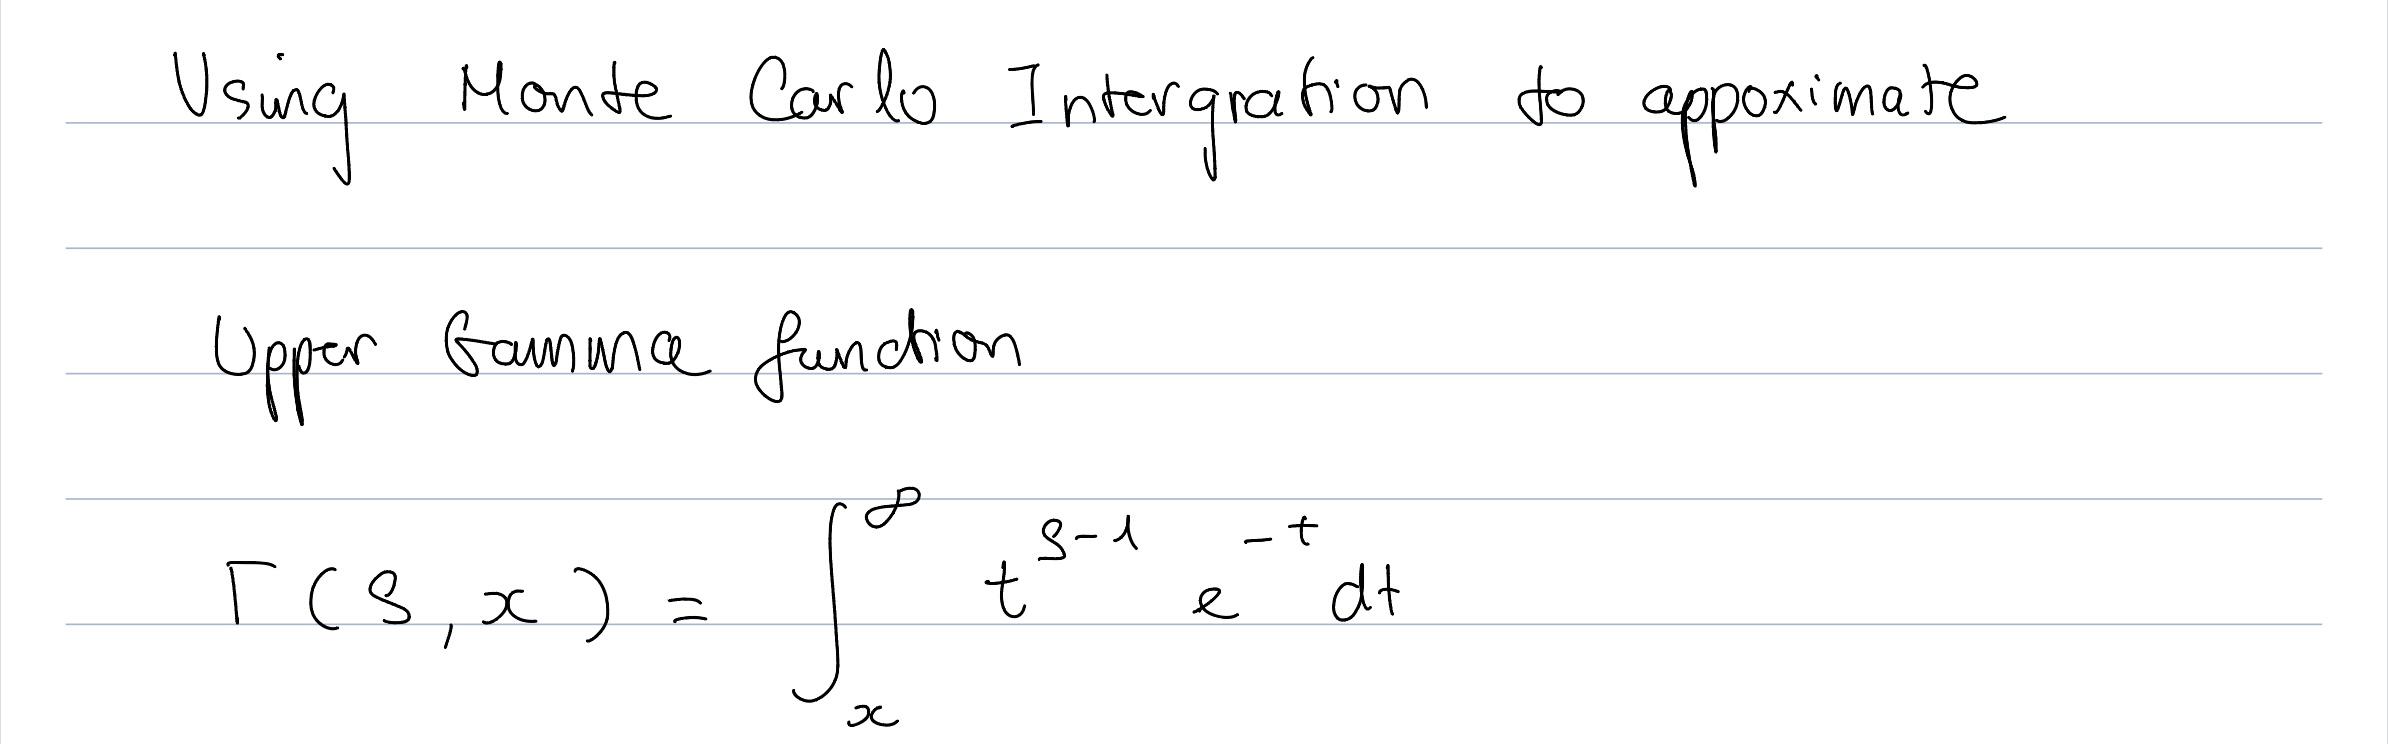 Using Monte Carlo Intergration to appoximate
Upper Gamma function
Γ(s, x) = ∫_x^∞ t^{s-1} e^{-t} dt